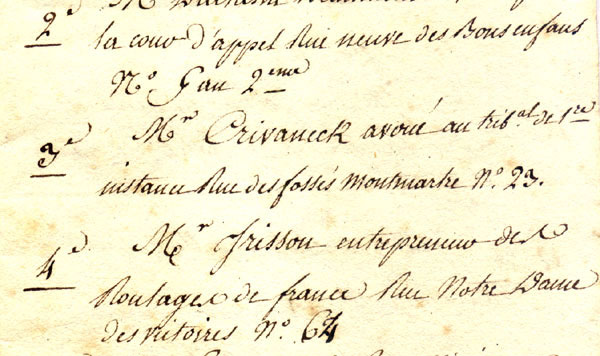 2e Mr
la cour d'appel Rue neuve des Bons enfans
No. 9 au 2eme
3e Mr Crivaneck avoué au tribal. de 1re
instance Rue des fossés montmartre No. 23.
4e Mr frisson entrepreneur des
Roulages de france Rue Notre Dame
des vitoires No. 64